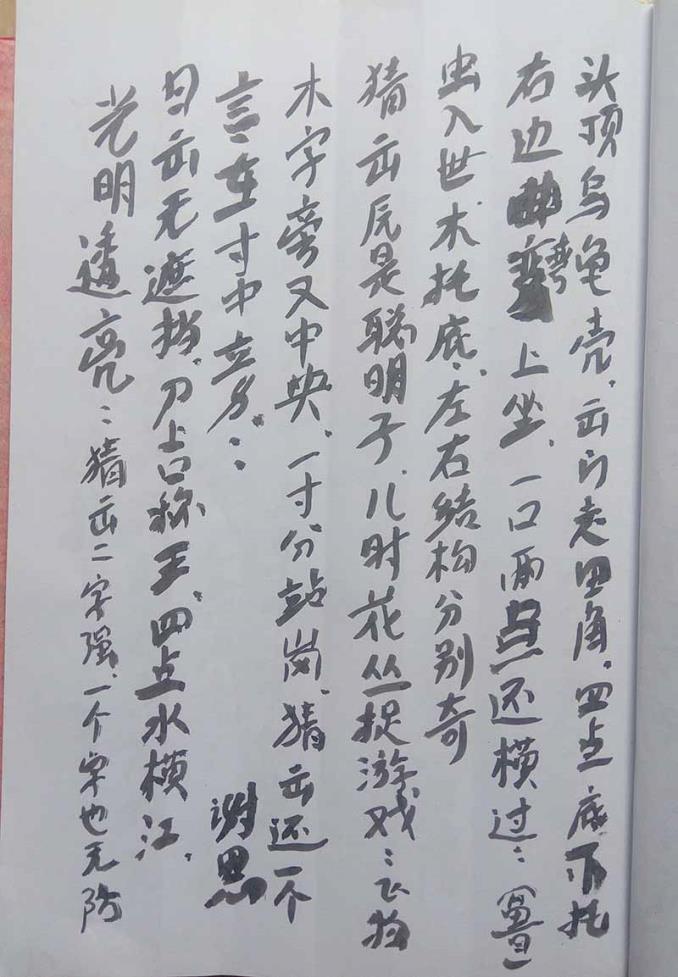 头顶乌龟壳、出门走四角、四点底下托
右边弯上坐、一口两点还横过：
虫入世、木托底、左右结构分别奇
猜出反是聪明子、儿时花丛捉游戏：飞物
木字旁又中央、一寸分站岗、猜出还一个
言在寸中立身：谢思
日出无遮挡、刀占称王、四点水横江、
光明透亮：猜出二字强、一个字也无防